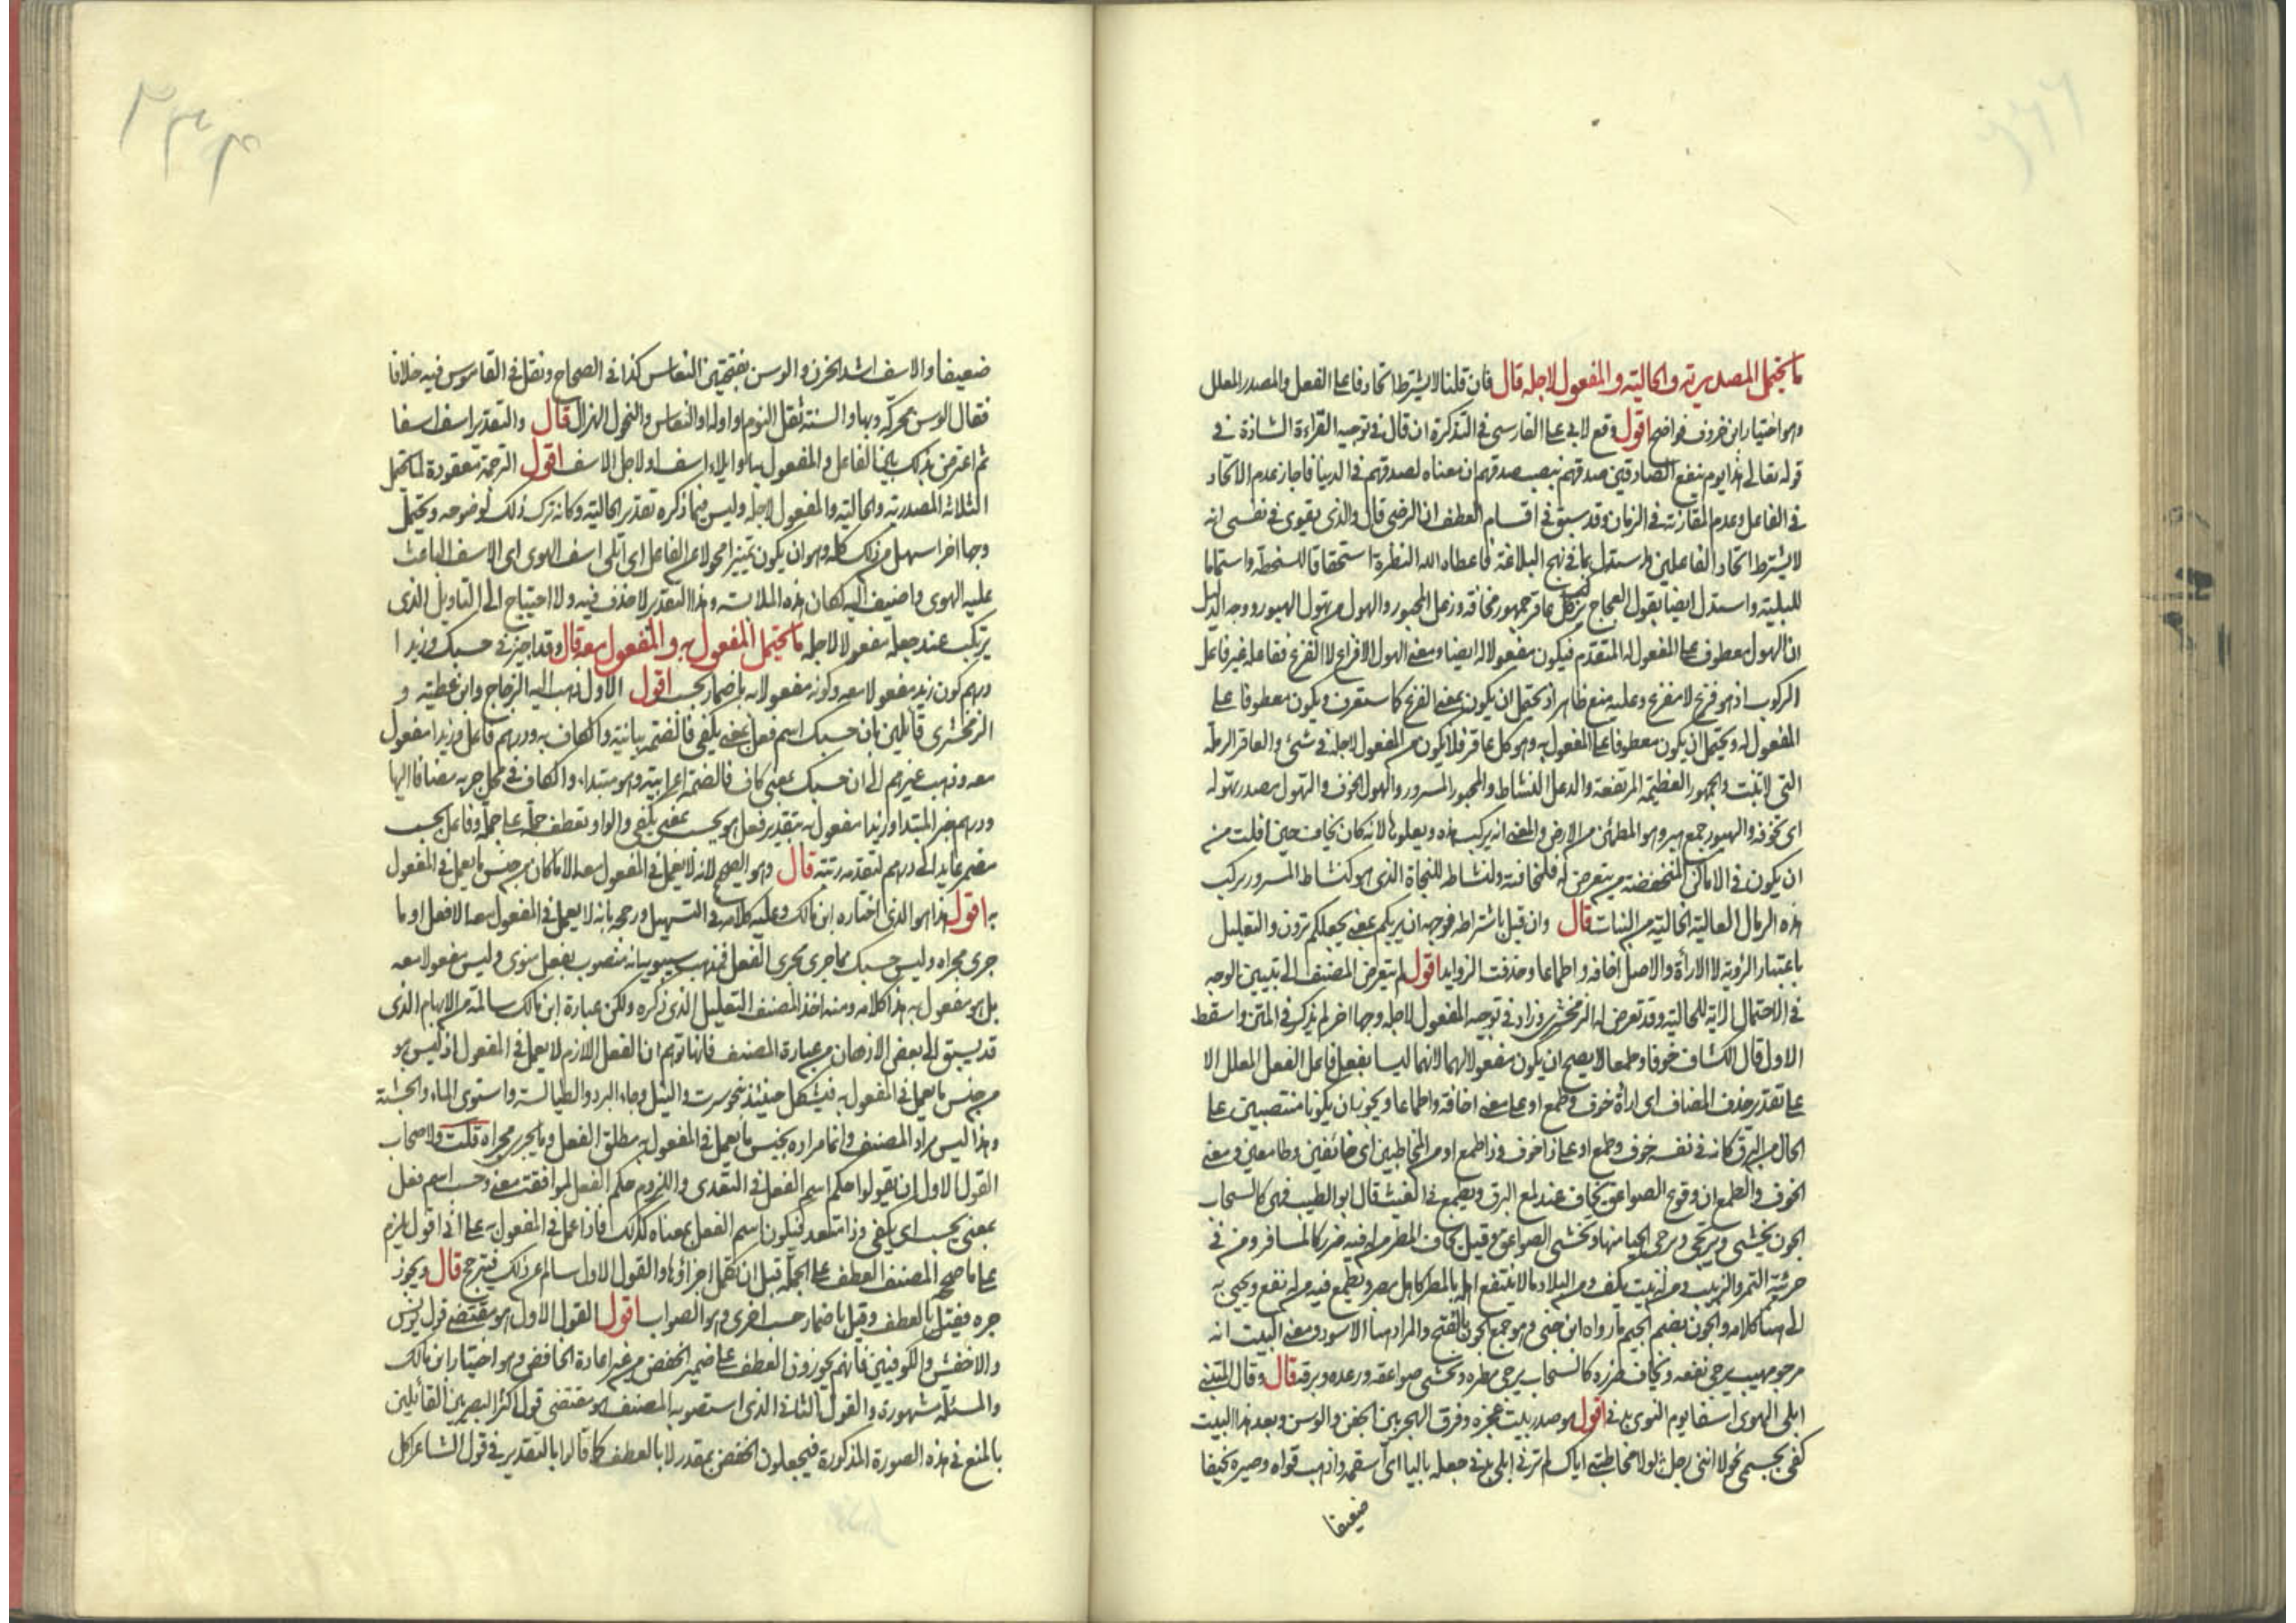 ما يحتمل المصدرية والحالية والمفعول لاجله قال فان قلنا لا يشترط اتحاد فاعلى الفعل والمصدر المعلل
وهو اختيار ابن خروف فواضح اقول وقع لابى على الفارسى فى التذكرة ان قال فى توجيه القراءة الشاذة فى
قوله تعالى هذا يوم ينفع الصادقين صدقهم بنصب صدقهم ان معناه لصدقهم فى الدنيا فاجاز عدم الاتحاد
فى الفاعل وعدم المقارنة فى الزمان وقد سبق فى اقسام العطف ان الرضى قال والذى يقوى فى نفسى انه
لا يشترط اتحاد الفاعلين واستدل بما فى نهج البلاغة فاعطاه الله النظرة استحقاقا للسخطة واستتماما
للبلية واستدل ايضا بقول العجاج يركب كل عاقر جمهور مخافة وزعل المحبور والهول من تهول الهبور ووجه الدليل
ان الهول معطوف على المفعول له المتقدم فيكون مفعولا له ايضا ومعنى الهول الافزاع لا الفزع ففاعله غير فاعل
الركوب اذ هو فزع لا مفزع وعليه منع ظاهر اذ يحتمل ان يكون بمعنى الفزع كما ستعرف ويكون معطوفا على
المفعول له ويحتمل ان يكون معطوفا على المفعول به وهو كل عاقر فلا يكون من المفعول لاجله فى شئ والعاقر الرملة
التى لا تنبت والجمهور العظيمة المرتفعة والدعل النشاط والمحبور المسرور والهول الخوف والتهول مصدر تهوله
اى تخوفه والهبور جمع هبر وهو المطمئن من الارض والمعنى انه يركب هذه ويعلوها لانه كان يخاف حين افلت من
ان يكون فى الاماكن المنخفضة من يتعرض له فلمخافته ولنشاطه للنجاة الذى هو كنشاط المسرور يركب
هذه الرمال العالية الخالية من النبات قال وان قيل باشتراطه فوجهه ان يريكم بمعنى يجعلكم ترون والتعليل
باعتبار الرؤية لا الاراءة والاصل اخافة واطماعا وحذفت الزوايد اقول لم يتعرض المصنف الى تبيين الوجه
فى الاحتمال الآية للحالية وقد تعرض له الزمخشرى وزاد فى توجيه المفعول لاجله وجها اخر لم يذكر فى المتن واسقط
الاول قال الكشاف خوفا وطمعا لا يصح ان يكون مفعولا لهما لانهما ليسا بفعل فاعل الفعل المعلل الا
على تقدير حذف المضاف اى ارادة خوف وطمع او على معنى اخافة واطماعا ويجوز ان يكونا منتصبين على
الحال من البرق كانه فى نفسه خوف وطمع او على ذا خوف وذا طمع او من المخاطبين اى خائفين وطامعين ومعنى
الخوف والطمع ان وقوع الصواعق يخاف عند لمع البرق ويطمع فى الغيث قال ابو الطيب فهى كالسحاب
الجون يخشى ويرتجى يرجى الحيا منها وتخشى الصواعق وقيل يخاف المطر من له فيه ضرر كالمسافر ومن فى
جرينه التمر والزبيب ومن له بيت يكف ومن البلاد ما لا ينتفع اهله بالمطر كاهل مصر ويطمع فيه من له نفع ويحيى به
الى هنا كلامه والجون بضم الجيم ما رواه ابن جنى وهو جمع الجون بالفتح والمراد هنا الاسود ومعنى البيت انه
مرجو مهيب يرجى نفعه ويخاف ضرره كالسحاب يرجى مطره وتخشى صواعقه ورعده وبرقه قال وقال المتنبى
ابلى الهوى اسفا يوم النوى بدنى اقول هو صدر بيت عجزه وفرق الهجر بين الجفن والوسن وبعد هذا البيت
كفى بجسمى نحولا اننى رجل لولا مخاطبتى اياك لم ترنى ابلى بدنى جعله باليا اى اسقمه واذهب قواه وصيره نحيفا
ضعيفا
ضعيفا والاسف اشد الحزن والوسن بفتحتين النعاس كذا فى الصحاح ونقل فى القاموس فيه خلافا
فقال الوسن محركة وبهاء والسنة ثقل النوم او اوله او النعاس والنحول الهزال قال والتقدير اسف اسفا
ثم اعترض بذلك بين الفاعل والمفعول به او ابلاء اسف او لاجل الاسف اقول الترجمة معقودة لما يحتمل
الثلاثة المصدرية والحالية والمفعول لاجله وليس فيما ذكره تقدير الحالية وكانه ترك ذلك لوضوحه ويحتمل
وجها اخر اسهل من ذلك كله وهو ان يكون تمييزا محولا عن الفاعل اى ابلى اسف الهوى اى الاسف الباعث
عليه الهوى واضيف اليه لمكان هذه الملابسة وهذا التقدير لا حذف فيه ولا احتياج الى التاويل الذى
يرتكب عند جعله مفعولا لاجله ما يحتمل المفعول به والمفعول معه قال وقد اجيز فى حسبك وزيدا
درهم كون زيد مفعولا معه وكونه مفعولا به باضمار يحسب اقول الاول ذهب اليه الزجاج وابن عطية و
الزمخشرى قائلين بان حسبك اسم فعل بمعنى يكفى فالضمة بنائية والكاف به ودرهم فاعل وزيدا مفعول
معه وذهب غيرهم الى ان حسبك بمعنى كاف فالضمة اعرابية وهو مبتداء والكاف فى محل جر به مضافا اليها
ودرهم خبر المبتدا وزيدا مفعول به بتقدير فعل هو يحسب بمعنى يكفى والواو تعطف جملة على جملة وفاعل يحسب
مضمر عايد الى درهم لتقدمه رتبة قال وهو الصحيح لانه لا يعمل فى المفعول معه الا ما كان من جنس ما يعمل فى المفعول
به اقول هذا هو الذى اختاره ابن مالك وعليه كلامه فى التسهيل ورجحه بانه لا يعمل فى المفعول معه الا فعل او ما
جرى مجراه وليس حسبك مما جرى مجرى الفعل فمذهب سيبويه انه منصوب بفعل منوى وليس مفعولا معه
بل هو مفعول به هذا كلامه ومنه اخذ المصنف التعليل الذى ذكره ولكن عبارة ابن مالك سالمة من الابهام الذى
قد يسبق الى بعض الاذهان من عبارة المصنف فانها توهم ان الفعل اللازم لا يعمل فى المفعول اذ ليس هو
من جنس ما يعمل فى المفعول به فيشكل حينئذ نحو سرت والنيل وجاء البرد والطيالسة واستوى الماء والخشبة
وهذا ليس مراد المصنف وانما مراده بجنس ما يعمل فى المفعول به مطلق الفعل وما يجرى مجراه قلت ولاصحاب
القول الاول ان يقولوا حكم اسم الفعل فى التعدى واللزوم حكم الفعل لموافقته معنى وحسب اسم فعل
بمعنى يحسب اى يكفى وذا متعد فيكون اسم الفعل بمعناه كذلك فاذا عمل فى المفعول به على انى اقول يلزم
على ما صحح المصنف العطف على الجملة قبل ان تكمل اجزاؤها والقول الاول سالم عن ذلك فيترجح قال ويجوز
جره فقيل بالعطف وقيل باضمار حسب اخرى وهو الصواب اقول القول الاول هو مقتضى قول يونس
والاخفش والكوفيين فانهم يجوزون العطف على ضمير الخفض من غير اعادة الخافض وهو اختيار ابن مالك
والمسئلة مشهورة والقول الثانى الذى استصوبه المصنف هو مقتضى قول اكثر البصريين القائلين
بالمنع فى هذه الصورة المذكورة فيجعلون الخفض بمقدر لا بالعطف كما قالوا بالتقدير فى قول الشاعر اكل